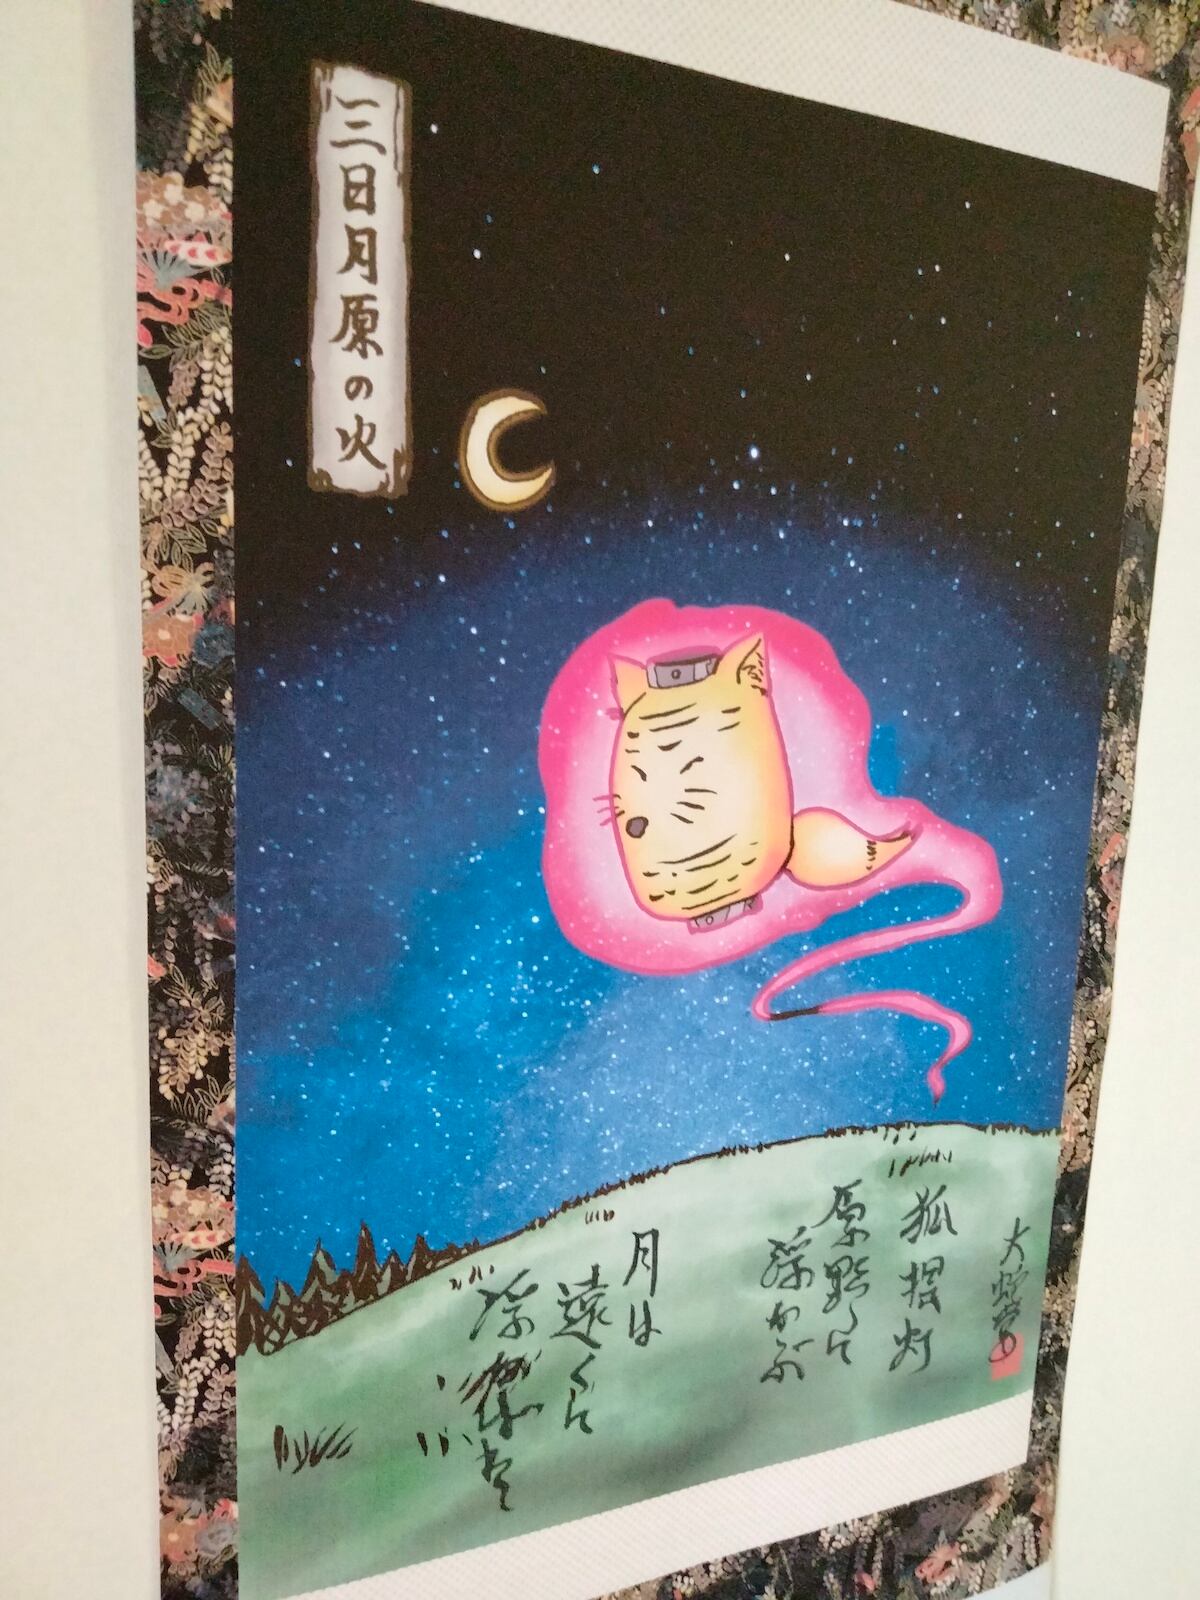 三日月原の火
大蛇堂
狐提灯
原に
浮かぶ
月は
遠くに
浮御堂